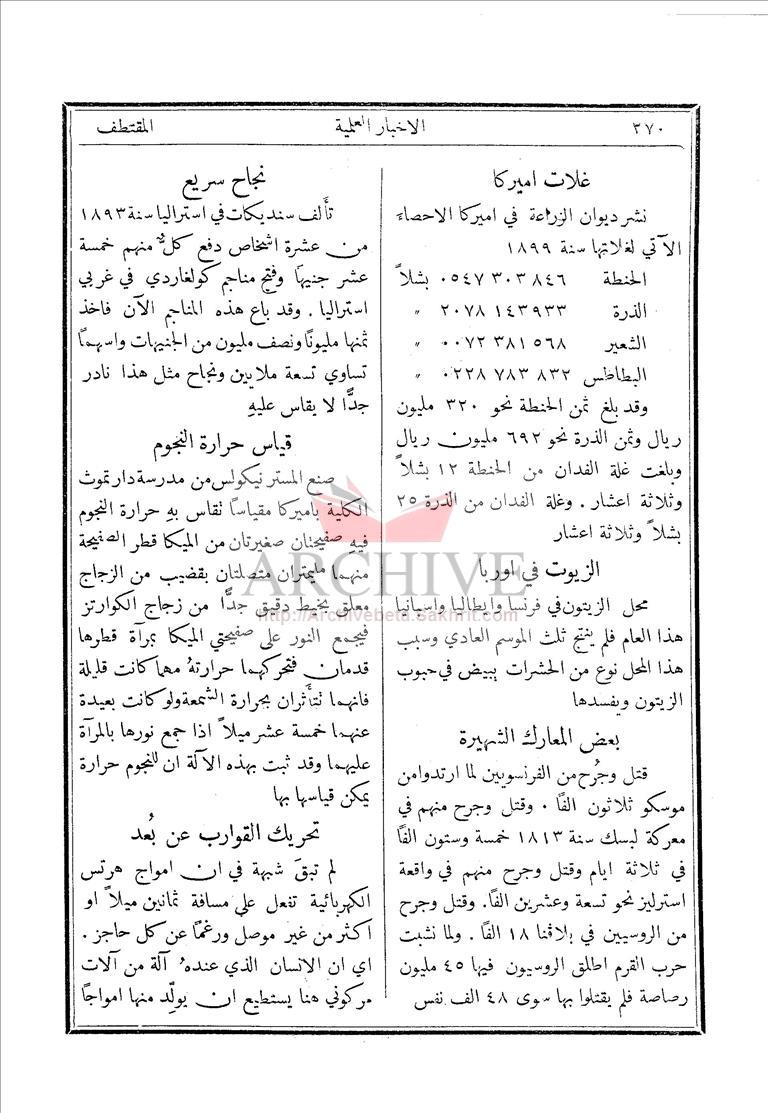 ٣٧٠
الاخبار العلمية
المقتطف
غلات اميركا
نشر ديوان الزراعة في اميركا الاحصاء
الآتي لغلاتها سنة ١٨٩٩
الحنطة ٠٥٤٧ ٣٠٣ ٨٤٦ بشلاً
الذرة ٢٠٧٨ ١٤٣ ٩٣٣ "
الشعير ٠٠٧٢ ٣٨١ ٥٦٨ "
البطاطس ٠٢٢٨ ٧٨٣ ٨٣٢ "
وقد بلغ ثمن الحنطة نحو ٣٢٠ مليون
ريال وثمن الذرة نحو ٦٩٢ مليون ريال
وبلغت غلة الفدان من الحنطة ١٢ بشلاً
وثلاثة اعشار . وغلة الفدان من الذرة ٢٥
بشلاً وثلاثة اعشار
الزيوت في اوربا
محل الزيتون في فرنسا وايطاليا واسبانيا
هذا العام فلم ينتج ثلث الموسم العادي وسبب
هذا المحل نوع من الحشرات يبيض في حبوب
الزيتون ويفسدها
بعض المعارك الشهيرة
قتل وجُرح من الفرنسويين لما ارتدوا من
موسكو ثلاثون الفًا . وقتل وجرح منهم في
معركة لبسك سنة ١٨١٣ خمسة وستون الفًا
في ثلاثة ايام وقتل وجرح منهم في واقعة
استرليز نحو تسعة وعشرين الفًا. وقتل وجرح
من الروسيين في بلاقنا ١٨ الفًا . ولما نشبت
حرب القرم اطلق الروسيون فيها ٤٥ مليون
رصاصة فلم يقتلوا بها سوى ٤٨ الف نفس
نجاح سريع
تأَلف سنديكات في استراليا سنة ١٨٩٣
من عشرة اشخاص دفع كلٌّ منهم خمسة
عشر جنيهًا وفتح مناجم كولغاردي في غربي
استراليا . وقد باع هذه المناجم الآن فاخذ
ثمنها مليونًا ونصف مليون من الجنيهات واسهمًا
تساوي تسعة ملايين ونجاح مثل هذا نادر
جدًّا لا يقاس عليهِ
قياس حرارة النجوم
صنع المستر نيكولس من مدرسة دارتموث
الكلية باميركا مقياسًا تقاس بهِ حرارة النجوم
فيهِ صفيحتان صغيرتان من الميكا قطر الصفيحة
منهما مليمتران متصلتان بقضيب من الزجاج
معلق بخيط دقيق جدًّا من زجاج الكوارتز
فيجمع النور على صفيحتي الميكا بمرآة قطرها
قدمان فتحركهما حرارتهُ مهما كانت قليلة
فانهما تتأَثران بحرارة الشمعة ولو كانت بعيدة
عنهما خمسة عشر ميلاً اذا جمع نورها بالمرآة
عليهما وقد ثبت بهذه الآلة ان للنجوم حرارة
يمكن قياسها بها
تحريك القوارب عن بُعد
لم تبقَ شبهة في ان امواج هرتس
الكهربائية تفعل على مسافة ثمانين ميلاً او
اكثر من غير موصل ورغمًا عن كل حاجز .
اي ان الانسان الذي عندهُ آلة من آلات
مركوني هنا يستطيع ان يولّد منها امواجًا
ARCHIVE
http://Archivebeta.Sakhrit.com